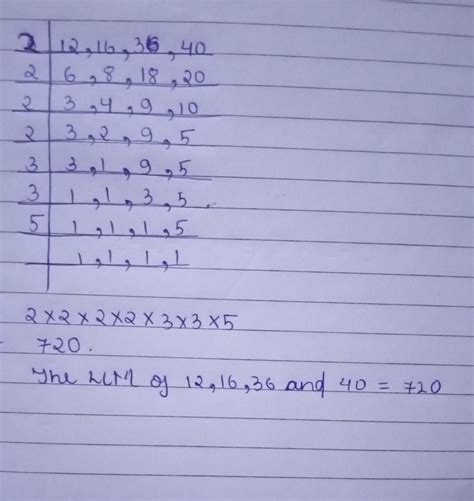 2 | 12, 16, 36, 40
2 | 6, 8, 18, 20
2 | 3, 4, 9, 10
2 | 3, 2, 9, 5
3 | 3, 1, 9, 5
3 | 1, 1, 3, 5.
5 | 1, 1, 1, 5
| 1, 1, 1, 1
2×2×2×2×3×3×5
720.
The LCM of 12, 16, 36 and 40 = 720